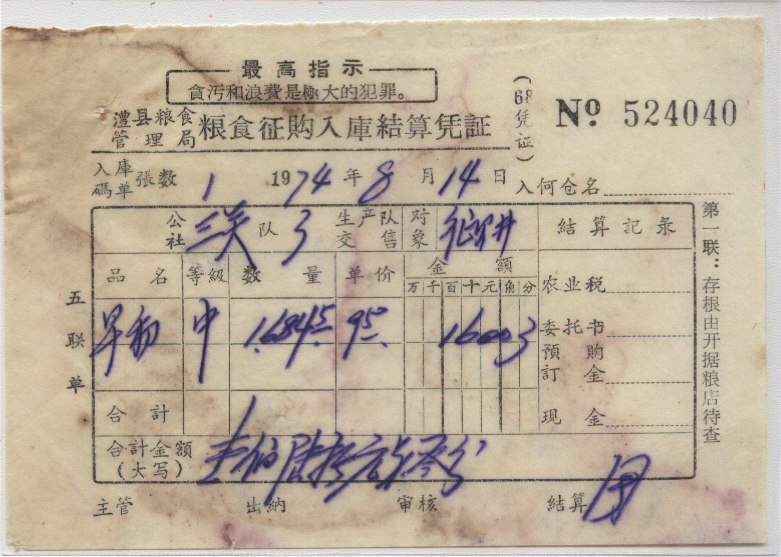 最高指示
貪汚和浪費是極大的犯罪。
澧县粮食管理局 粮食征购入庫結算凭証
(68凭証)
№ 524040
入庫碼单張数 1 1974年8月14日 入何仓名
公社 三关 队 3 生产队交售 对象 結算記录
品名 等級 数量 单价 金額
万 千 百 十 元 角 分
农业税
早籼 中 1684.5 9.50 160.03
委托书
預购訂金
合計
現金
合計金額(大写) 壹佰陆拾元另叁分
主管 出納 审核 結算
五联单
第一联:存根由开据粮店待查